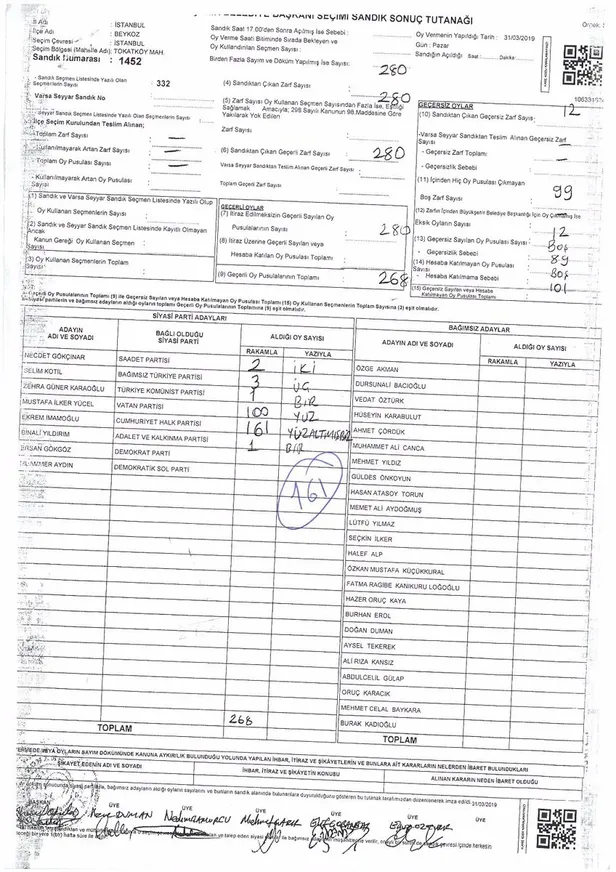 BAŞKANI SEÇİMİ SANDIK SONUÇ TUTANAĞI
İl Adı : İSTANBUL
İlçe Adı : BEYKOZ
Seçim Çevresi : İSTANBUL
Seçim Bölgesi (Mahalle Adı): TOKATKÖY MAH.
Sandık Numarası : 1452
Sandık Saat 17.00'den Sonra Açılmış İse Sebebi :
Oy Verme Saati Bitiminde Sırada Bekleyen ve
Oy Kullandırılan Seçmen Sayısı :
Birden Fazla Sayım ve Döküm Yapılmış İse Sayısı:
Oy Vermenin Yapıldığı Tarih : 31/03/2019
Gün : Pazar
Sandığın Açıldığı Saat : Dakika:
280
- Sandık Seçmen Listesinde Yazılı Olan
Seçmenlerin Sayısı : 332
Varsa Seyyar Sandık No
- Seyyar Sandık Seçmen Listesinde Yazılı Olan Seçmenlerin Sayısı
İlçe Seçim Kurulundan Teslim Alınan;
Toplam Zarf Sayısı
- Kullanılmayarak Artan Zarf Sayısı :
Toplam Oy Pusulası Sayısı
- Kullanılmayarak Artan Oy Pusulası
Sayısı
(4) Sandıktan Çıkan Zarf Sayısı : 280
(5) Zarf Sayısı Oy Kullanan Seçmen Sayısından Fazla İse, Eşitliği
Sağlamak Amacıyla; 298 Sayılı Kanunun 98.Maddesine Göre
Yakılarak Yok Edilen
Zarf Sayısı :
(6) Sandıktan Çıkan Geçerli Zarf Sayısı : 280
Varsa Seyyar Sandıktan Teslim Alınan Geçerli Zarf Sayısı:
Toplam Geçerli Zarf Sayısı :
GEÇERSİZ OYLAR
(10) Sandıktan Çıkan Geçersiz Zarf Sayısı : 12
-Varsa Seyyar Sandıktan Teslim Alınan Geçersiz Zarf
Sayısı
- Geçersiz Zarf Toplamı
- Geçersizlik Sebebi
(11) İçinden Hiç Oy Pusulası Çıkmayan
Boş Zarf Sayısı : 99
(1) Sandık ve Varsa Seyyar Sandık Seçmen Listesinde Yazılı Olup
Oy Kullanan Seçmenlerin Sayısı :
(2) Sandık ve Seyyar Sandık Seçmen Listesinde Kayıtlı Olmayan
Ancak
Kanun Gereği Oy Kullanan Seçmen :
Sayısı
(3) Oy Kullanan Seçmenlerin Toplam
Sayısı
GEÇERLİ OYLAR
(7) İtiraz Edilmeksizin Geçerli Sayılan Oy
Pusulalarının Sayısı : 280
(8) İtiraz Üzerine Geçerli Sayılan veya
Hesaba Katılan Oy Pusulası :
(9) Geçerli Oy Pusulalarının Toplamı : 268
(12) Zarfın İçinden Büyükşehir Belediye Başkanlığı İçin Oy Çıkmamış İse
Eksik Oyların Sayısı : 12
(13) Geçersiz Sayılan Oy Pusulası Sayısı : Boş
- Geçersizlik Sebebi : 89
(14) Hesaba Katılmayan Oy Pusulası
Sayısı
- Hesaba Katılmama Sebebi : Boş
(15) Geçersiz Sayılan veya Hesaba
Katılmayan Oy Pusulası Toplamı : 101
SİYASİ PARTİ ADAYLARI
BAĞIMSIZ ADAYLAR
ADAYIN ADI VE SOYADI BAĞLI OLDUĞU SİYASİ PARTİ ALDIĞI OY SAYISI
RAKAMLA YAZIYLA
ADAYIN ADI VE SOYADI ALDIĞI OY SAYISI
RAKAMLA YAZIYLA
NECDET GÖKÇINAR SAADET PARTİSİ 2 İKİ
SELİM KOTİL BAĞIMSIZ TÜRKİYE PARTİSİ 3 ÜÇ
ZEHRA GÜNER KARAOĞLU TÜRKİYE KOMÜNİST PARTİSİ 1 BİR
MUSTAFA İLKER YÜCEL VATAN PARTİSİ 100 YÜZ
EKREM İMAMOĞLU CUMHURİYET HALK PARTİSİ 161 YÜZALTMIŞBİR
BİNALİ YILDIRIM ADALET VE KALKINMA PARTİSİ 1 BİR
ERSAN GÖKGÖZ DEMOKRAT PARTİ
MUAMMER AYDIN DEMOKRATİK SOL PARTİ
161
ÖZGE AKMAN
DURSUNALİ BACIOĞLU
VEDAT ÖZTÜRK
HÜSEYİN KARABULUT
AHMET ÇÖRDÜK
MUHAMMET ALİ CANCA
MEHMET YILDIZ
GÜLDES ÖNKOYUN
HASAN ATASOY TORUN
MEMET ALİ AYDOĞMUŞ
LÜTFÜ YILMAZ
SEÇKİN İLKER
HALEF ALP
ÖZKAN MUSTAFA KÜÇÜKKURAL
FATMA RAGİBE KANIKURU LOĞOĞLU
HAZER ORUÇ KAYA
BURHAN EROL
DOĞAN DUMAN
AYSEL TEKEREK
ALİ RIZA KANSIZ
ABDULCELİL GÜLAP
ORUÇ KARACIK
MEHMET CELAL BAYKARA
BURAK KADIOĞLU
TOPLAM 268
TOPLAM
VEYA OYLARIN SAYIM DÖKÜMÜNDE KANUNA AYKIRILIK BULUNDUĞU YOLUNDA YAPILAN İHBAR, İTİRAZ VE ŞİKAYETLERİN VE BUNLARA AİT KARARLARIN NELERDEN İBARET BULUNDUKLARI
ŞİKAYET EDENİN ADI VE SOYADI İHBAR, İTİRAZ VE ŞİKAYETİN KONUSU ALINAN KARARIN NEDEN İBARET OLDUĞU
31/03/2019
BAŞKAN ÜYE ÜYE ÜYE ÜYE ÜYE ÜYE